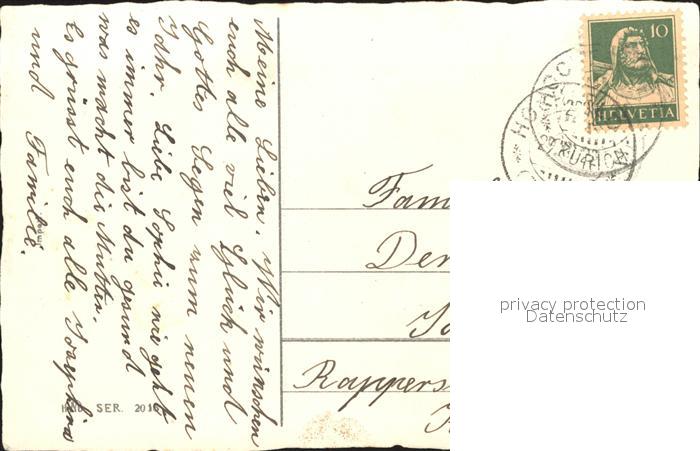 Meine Lieben. Wir wünschen
euch alle viel Glück und
Gottes Segen zum neuen
Jahr. Liebe Sophie wie geht
es immer bist du gesund
was macht die Mutter.
Es grüsst euch alle Josephine
und Familie.
SER. 201
10
HELVETIA
ZÜRICH
Fam
De
Rappers
privacy protection
Datenschutz